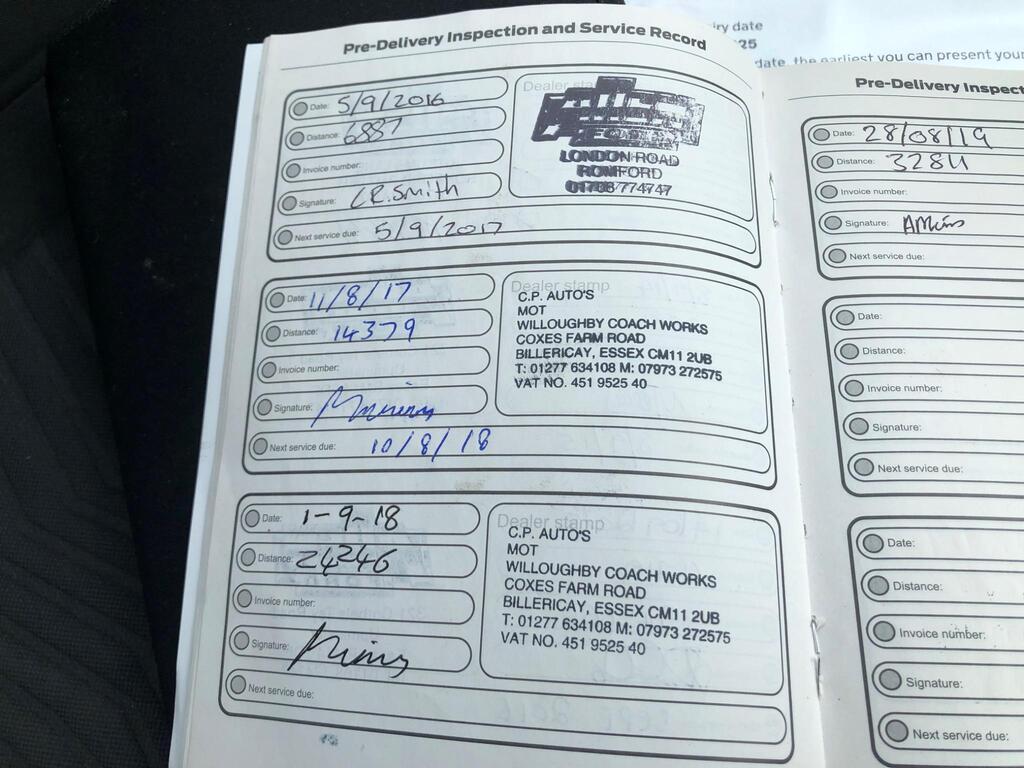 Pre-Delivery Inspection and Service Record
Date: 5/9/2016
Distance: 6887
Invoice number:
Signature: L.R.Smith
Next service due: 5/9/2017
Dealer sta
LONDON ROAD
ROMFORD
01708 774747
Date: 11/8/17
Distance: 14379
Invoice number:
Signature:
Next service due: 10/8/18
Dealer stamp
C.P. AUTO'S
MOT
WILLOUGHBY COACH WORKS
COXES FARM ROAD
BILLERICAY, ESSEX CM11 2UB
T: 01277 634108 M: 07973 272575
VAT NO. 451 9525 40
Date: 1-9-18
Distance: 24246
Invoice number:
Signature:
Next service due:
Dealer stamp
C.P. AUTO'S
MOT
WILLOUGHBY COACH WORKS
COXES FARM ROAD
BILLERICAY, ESSEX CM11 2UB
T: 01277 634108 M: 07973 272575
VAT NO. 451 9525 40
iry date
25
date, the earliest you can present your
Pre-Delivery Inspect
Date: 28/08/19
Distance:
Invoice number:
Signature:
Next service due:
Date:
Distance:
Invoice number:
Signature:
Next service due:
Date:
Distance:
Invoice number:
Signature:
Next service due: